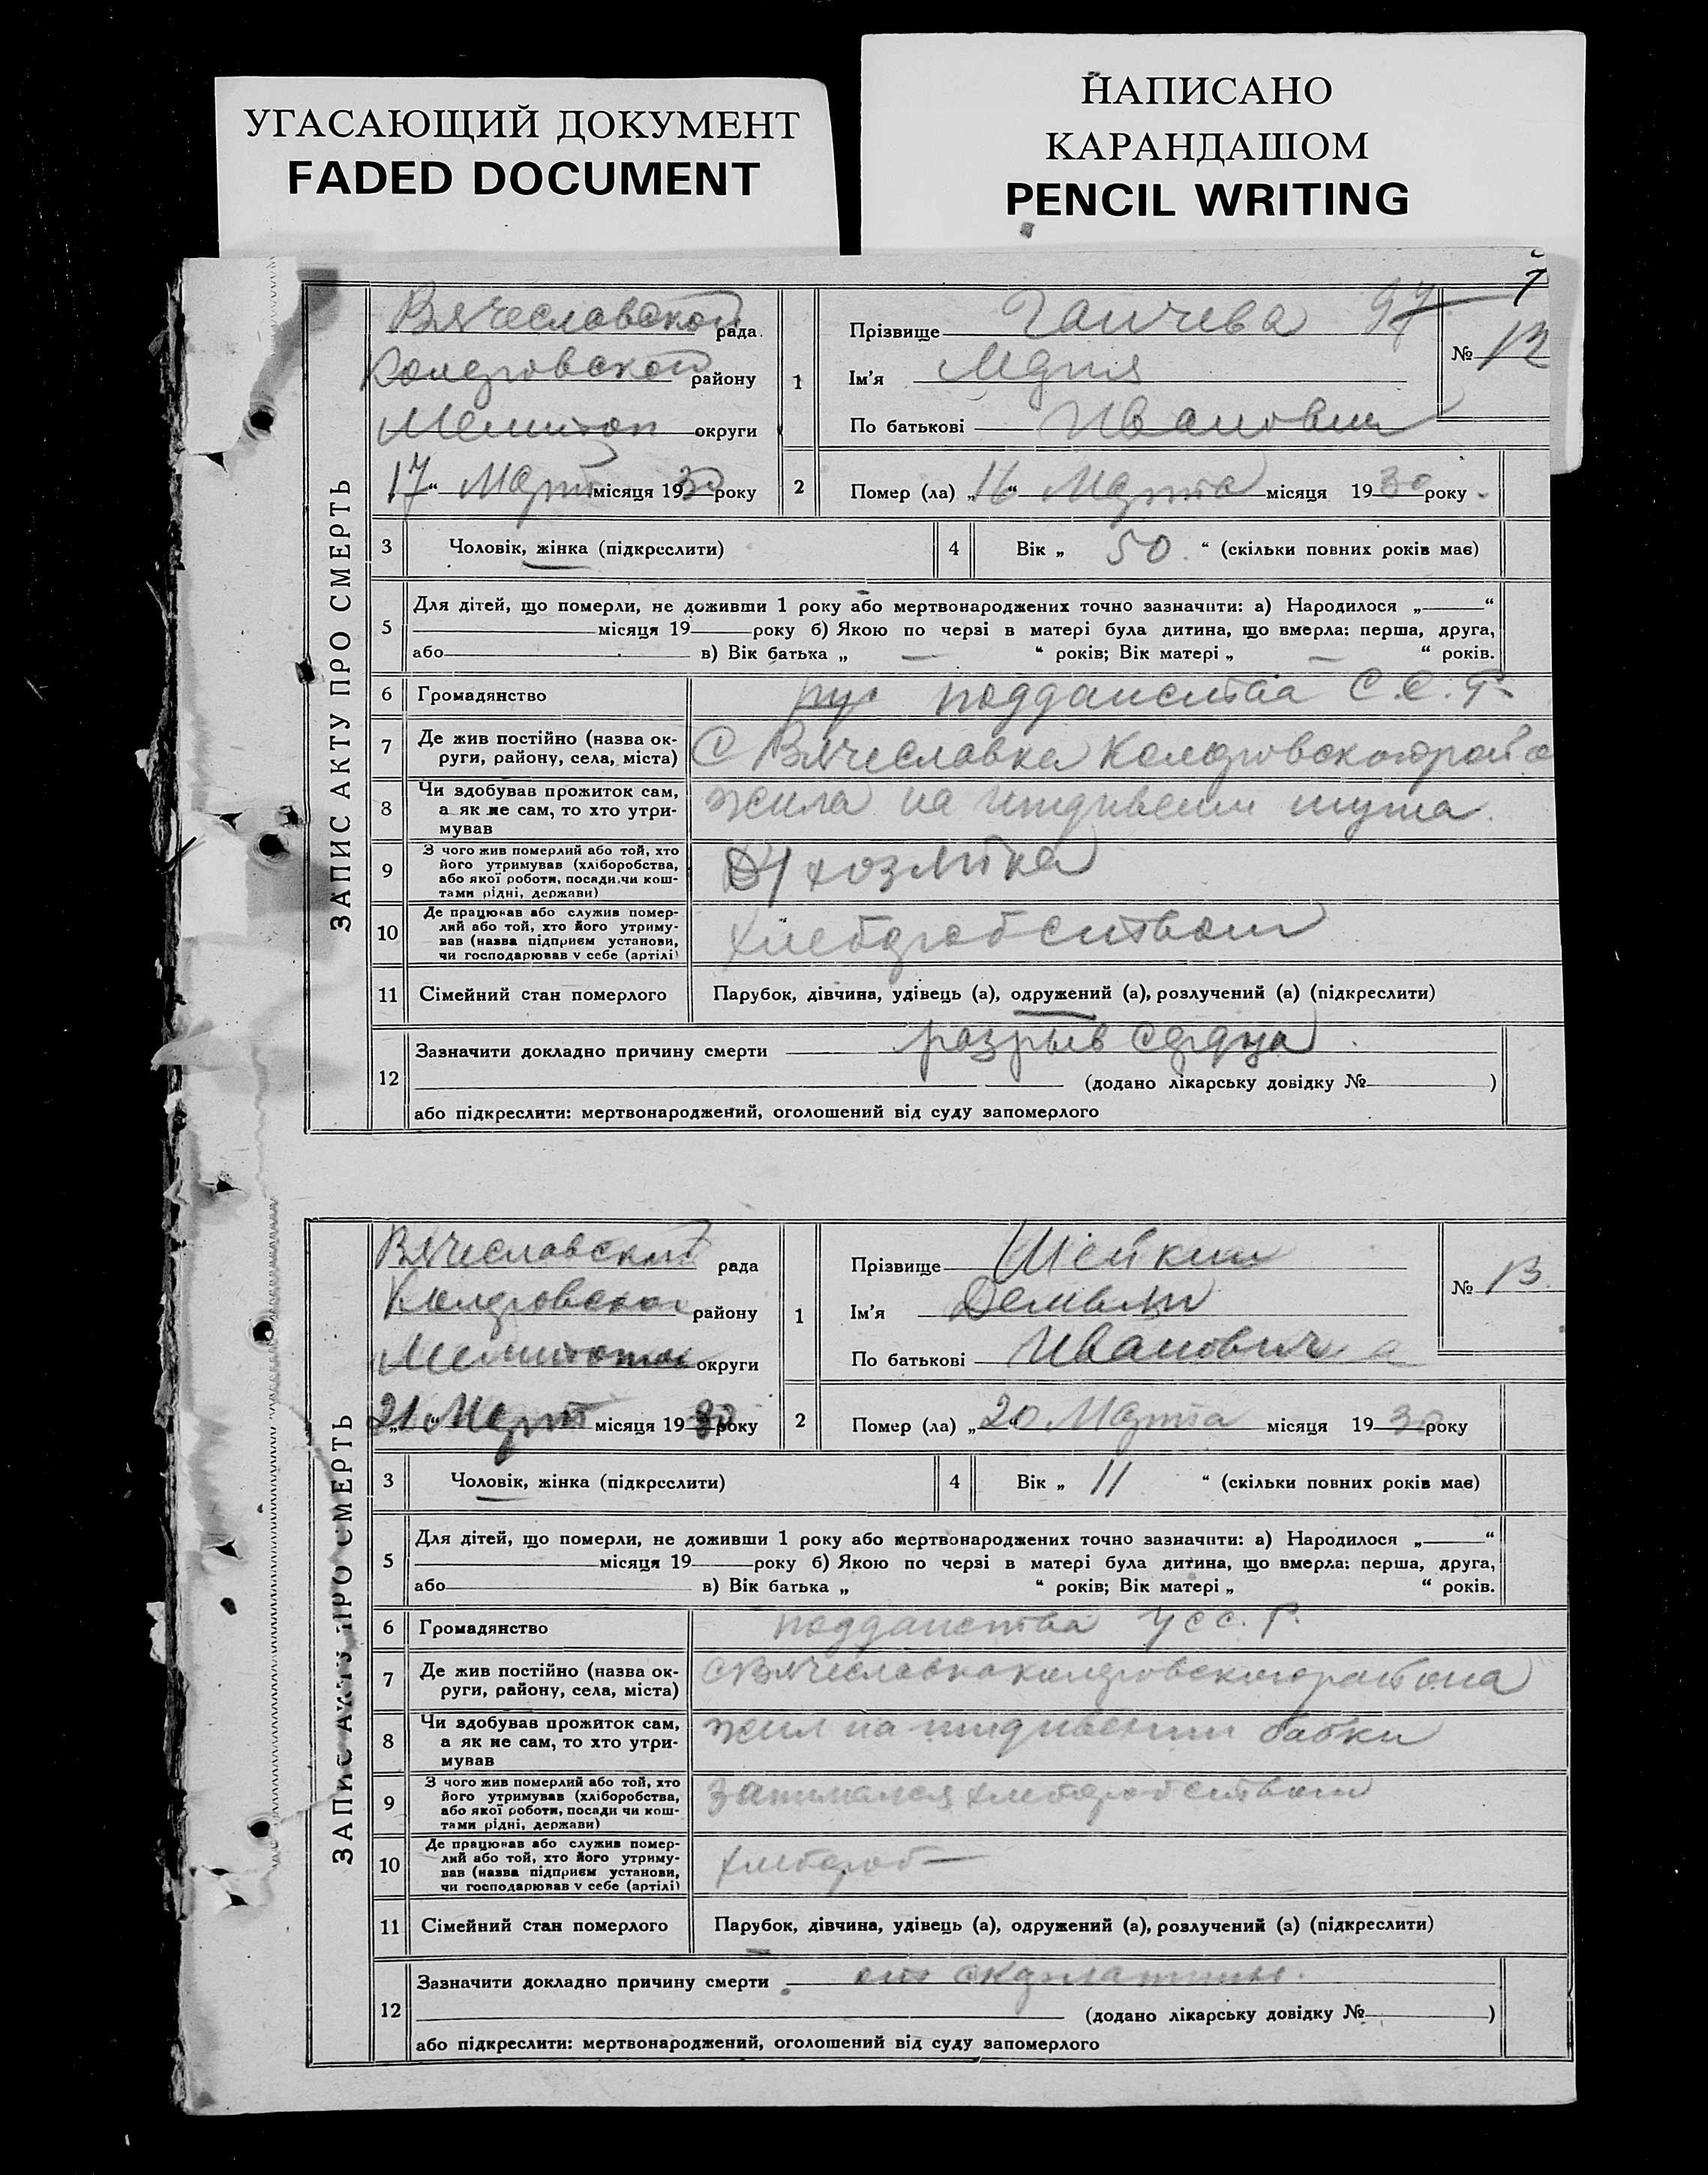 УГАСАЮЩИЙ ДОКУМЕНТ
FADED DOCUMENT
НАПИСАНО
КАРАНДАШОМ
PENCIL WRITING
ЗАПИС АКТУ ПРО СМЕРТЬ
Вячеславской рада
районy
Мелитоп округи
„17“ Март місяця 1930 року
1
Прізвище Ганчева 97
Ім'я Мария
По батькові Ивановн
№ 12
2 Помер (ла) „16“ Марта місяця 1930 року
3 Чоловік, жінка (підкреслити)
4 Вік „ 50 “ (скільки повних років має)
5 Для дітей, що померли, не доживши 1 року або мертвонароджених точно зазначити: а) Народилося „ “
місяця 19 року б) Якою по черзі в матері була дитина, що вмерла: перша, друга,
або в) Вік батька „ — “ років; Вік матері „ — “ років.
6 Громадянство подданства
7 Де жив постійно (назва округи, району, села, міста) С Вячеславка
8 Чи здобував прожиток сам, а як не сам, то хто утримував жила на иждивении мужа
9 З чого жив померлий або той, хто його утримував (хліборобства, або якої роботи, посади чи коштами рідні, держави)
10 Де працював або служив померлий або той, хто його утримував (назва підприєм установи, чи господарював у себе (артілі) хлеборобством
11 Сімейний стан померлого Парубок, дівчина, удівець (а), одружений (а), розлучений (а) (підкреслити)
12 Зазначити докладно причину смерти разрыв сердца
(додано лікарську довідку № )
або підкреслити: мертвонароджений, оголошений від суду запомерлого
ЗАПИС АКТУ ПРО СМЕРТЬ
Вячеславской рада
району
округи
„21“ Март місяця 1930 року
1
Прізвище Шейкин
Ім'я Демьян
По батькові Иванович
№ 13
2 Помер (ла) „20“ Марта місяця 1930 року
3 Чоловік, жінка (підкреслити)
4 Вік „ 11 “ (скільки повних років має)
5 Для дітей, що померли, не доживши 1 року або мертвонароджених точно зазначити: а) Народилося „ “
місяця 19 року б) Якою по черзі в матері була дитина, що вмерла: перша, друга,
або в) Вік батька „ “ років; Вік матері „ “ років.
6 Громадянство подданства УСС.Р.
7 Де жив постійно (назва округи, району, села, міста) с Вячеславка
8 Чи здобував прожиток сам, а як не сам, то хто утримував жил на иждивении бабки
9 З чого жив померлий або той, хто його утримував (хліборобства, або якої роботи, посади чи коштами рідні, держави) занимался хлеборобством
10 Де працював або служив померлий або той, хто його утримував (назва підприєм установи, чи господарював у себе (артілі) хлебороб
11 Сімейний стан померлого Парубок, дівчина, удівець (а), одружений (а), розлучений (а) (підкреслити)
12 Зазначити докладно причину смерти от скарлатины.
(додано лікарську довідку № )
або підкреслити: мертвонароджений, оголошений від суду запомерлого